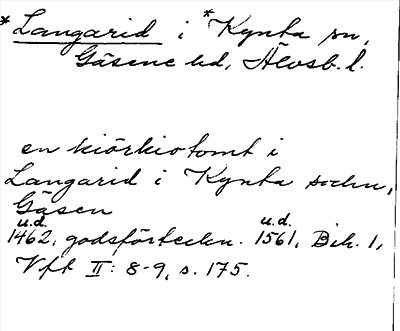 *Langarid i *Kynta sn,
Gäsene hd, Älvsb. l.
en kiörkiotomt i
Langarid i Kynta sochn,
Gäsen
u.d. u.d.
1462, godsförteckn. 1561, Bih. 1,
Vft II: 8-9, s. 175.